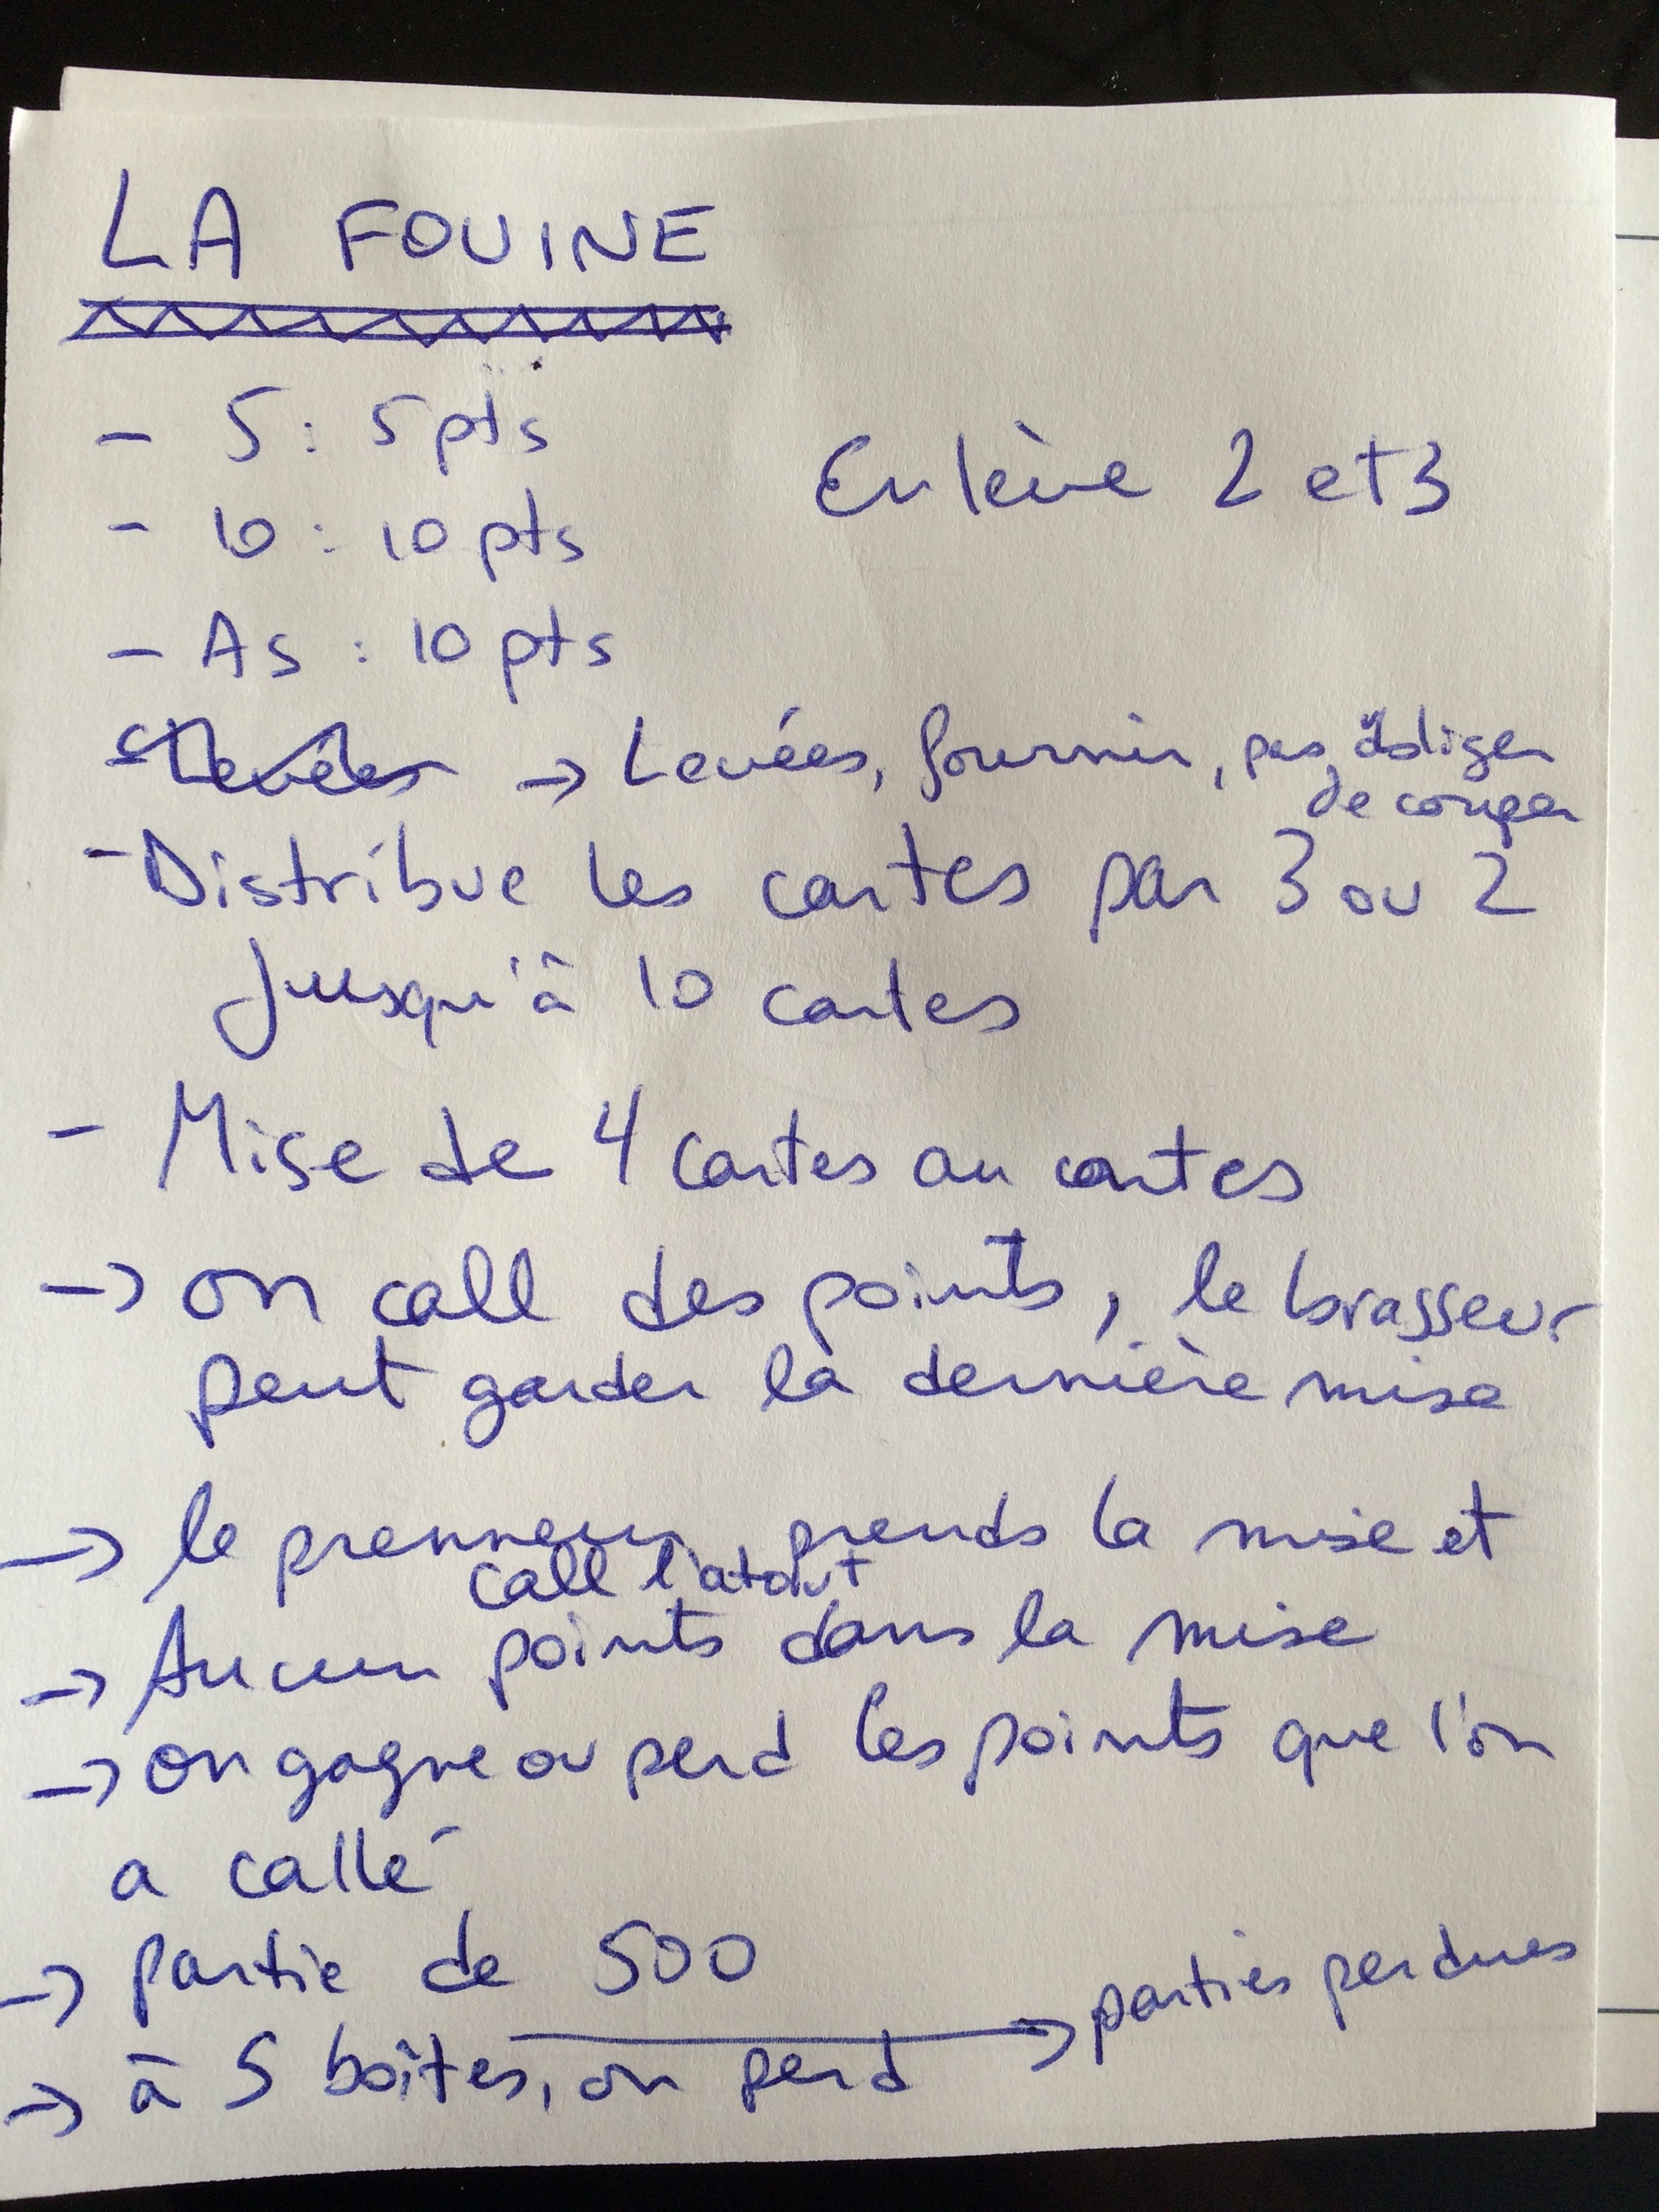 LA FOUINE
- 5 : 5 pts
Enlève 2 et 3
- 10 : 10 pts
- As : 10 pts
→ Levées, fournir, pas obliger
de couper
- Distribue les cartes par 3 ou 2
jusqu'à 10 cartes
- Mise de 4 cartes au cartes
→ on call des points, le brasseur
peut garder la dernière mise
→ le prenneur prends la mise et
call l'atout
→ Aucun points dans la mise
→ on gagne ou perd les points que l'on
a callé
→ partie de 500
→ parties perdues
→ à 5 boîtes, on perd